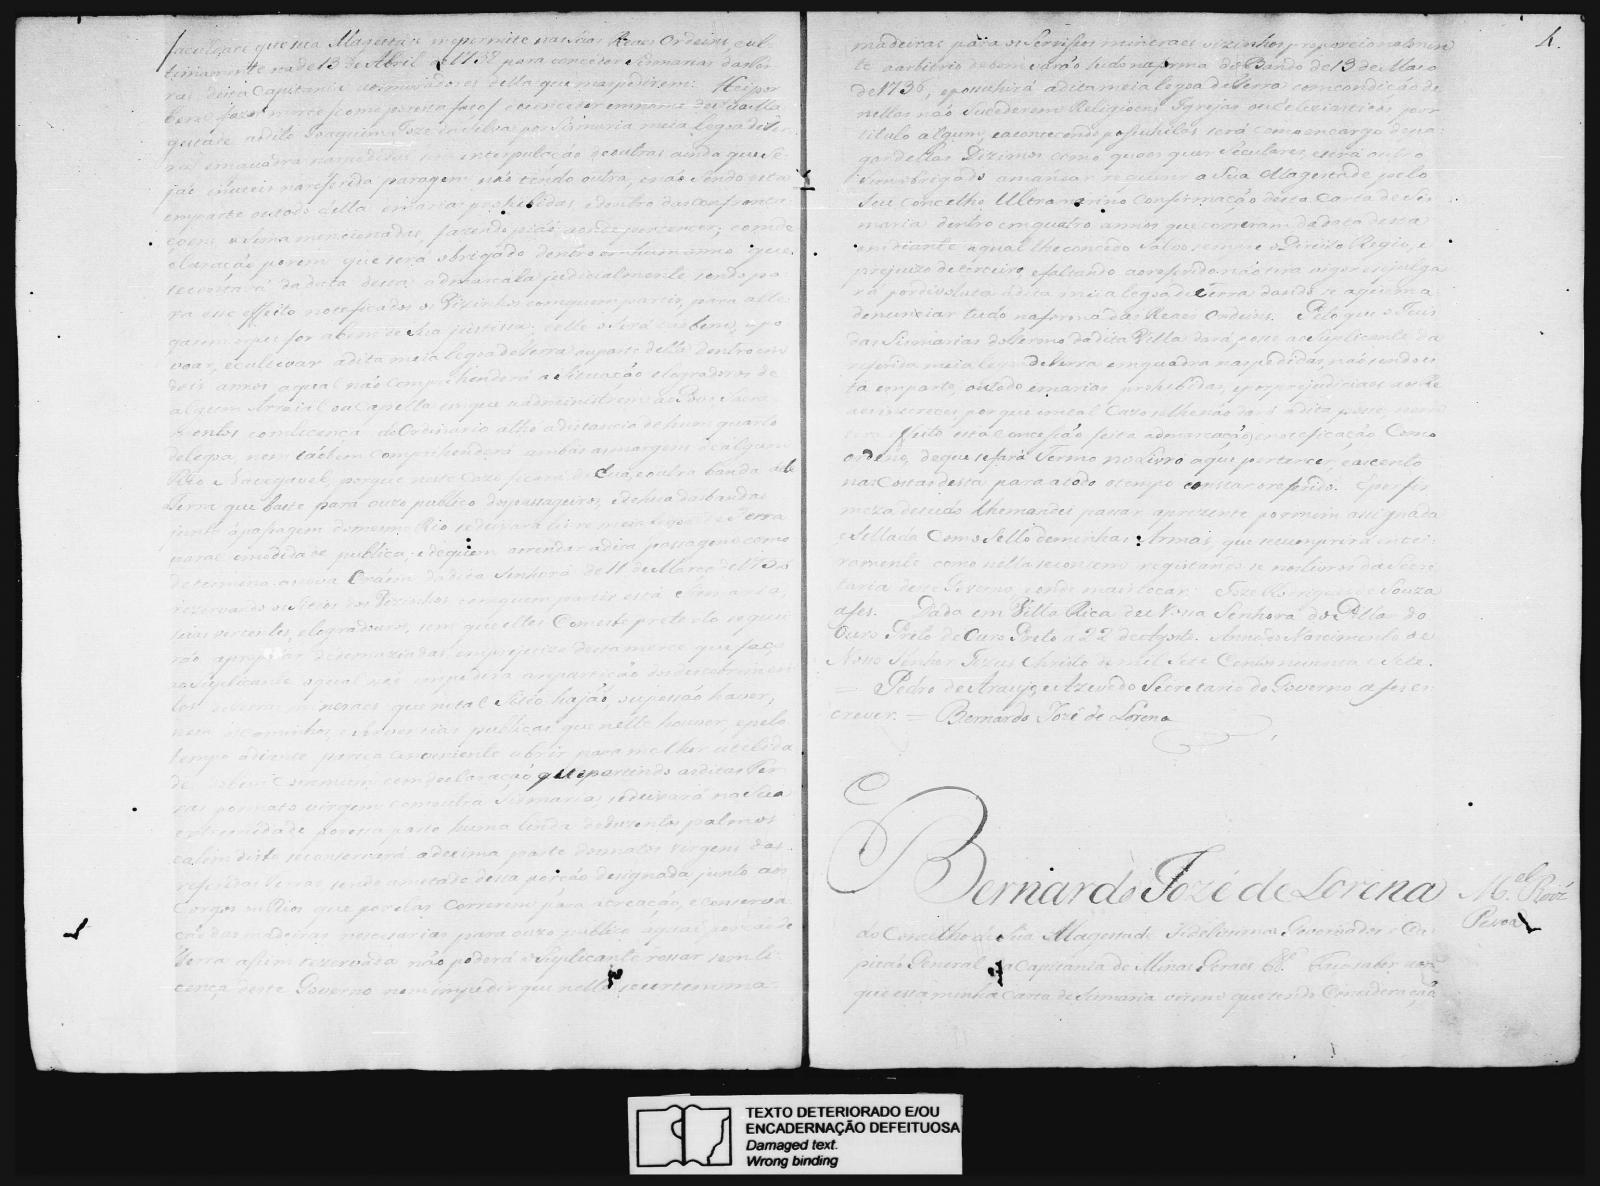 faculdade que sua Magestade me permite nas suas Reaes Ordens, e ul-
timamente na de 13 de Abril de 1738 para conceder Sesmarias das ter-
ras desta Capitania aos moradores della que mas pedirem: Hei por
bem fazer merce (como por esta faço) de conceder em nome de sua Ma-
gestade ao dito Joaquim Jozé da Silva por Sismaria meia legoa de ter-
ra em quadra nas pedidas sem interpulação de outras ainda que se-
jão inuteis na referida paragem não tendo outra, e não sendo esta
em parte ou todo della em arias prohibidas e dentro das confronta-
çoens asima mencionadas, fazendo pião aonde pertencer; com de-
claração porem que será obrigado dentro em hum anno que
se contará da data desta a demarcala judicialmente sendo pa-
ra esse effeito noteficados os Vizinhos com quem partir, para alle-
garem o que for a bem de sua justissa: e elle o será tambem, a po-
voar, e cultivar a dita meia legoa de terra ou parte della dentro em
dois annos, a qual não Comprehenderá a Situação e logradoros de
algum Arraial ou Capella em que se administrem ao Povo Sacra-
mentos com licença do Ordinario athé a distancia de hum quarto
de legoa, nem tãobem Comprehenderá ambas as margens de algum
Rio Navegavel, porque neste Cazo ficará de huã, e outra banda delle
Terra que baste para o uzo publico dos passageiros, e de hua das bandas
junto á passagem do mesmo Rio se deixará livre meia legoa de Terra
para comodidade publica, e de quem arrendar a dita passagem como
determina a nova Ordem da dita Senhora de 11 de Março de 1754
rezervando os Sitios dos Vizinhos com quem partir esta Sismaria,
suas vertentes, e logradouros, sem que elles Com este preteisto se quei-
rão apropriar de demaziadas em prejuizo desta merce que faço
ao Suplicante o qual não impedirá a repartição dos descobrimen-
tos de terras mineraes que no tal Sitio hajão, ou possão haver,
nem os caminhos, e serventias publicas que nelle houver, e pelo
tempo adiente pareça conveniente abrir para melhor utelida-
de do bem Commum; com declaração que partindo as ditas Ter-
ras por mato virgem com outra Sismaria, se deixará na Sua
extremidade por essa parte huma linda de duzentos palmos
e alem disto se conservará a decima parte dos matos virgens das
referidas Terras sendo ametade dessa porção designada junto aos
Corgos ou Rios que por elas Correrem para a creação, e conserva-
ção das madeiras necessarias para o uzo publico a qual porção de
Terra asim rezervada não poderá o Suplicante rossar sem li-
cença deste Governo nem impedir que nella se cortem ma-
4.
madeiras para os Serviços mineraes vizinhos proporcionalmen-
te a arbitrio de bom varão tudo na forma do Bando de 13 de Maio
de 1736, e possuhirá a dita meia legoa de terra com condição de
nellas não Sucederem Religioens Igrejas ou Ecleziasticos por
titulo algum, e acontecendo possuhilas será com o encargo de pa-
gar dellas Dizimos como quaes quer Seculares, e será outro
sim obrigado a mandar requerer a Sua Magestade pelo
Seu Concelho Ultramarino Confirmação desta Carta de Ses-
maria dentro em quatro annos que correram da data desta
em diante a qual lhe concedo salvo sempre o Direito Regio, e
prejuizo de terceiro, e faltando ao referido não terá vigor e se julga-
rá por divoluta a dita meia legoa de terra dando-se a quem a
denunciar tudo na forma das Reaes Ordens. Pelo que o Juis
das Sismarias do termo da dita Villa dará posse ao Suplicante da
referida meia legoa de terra em quadra nas pedidas, não sendo es-
ta em parte, ou todo em arias prohibidas, e por prejudiciaes aos Re-
aes intereces porque em tal Cazo se lhe não dará a dita posse, nem
terá effeito esta Concessão feita a demarcação, e noteficação Como
ordeno, de que se fará Termo no Livro a que pertencer, e ascento
nas Costas desta para a todo o tempo constar o referido. E por fir-
meza de tudo lhe mandei passar a prezente por mim assignada
e Sellada Com o Sello de minhas Armas, que se cumprirá intei-
ramente como nella se contem registando-se nos Livros da Secre-
taria deste Governo, e onde mais tocar. Jozé Rodrigues e Souza
a fes. Dada em Villa Rica de Nossa Senhora do Pillar do
Ouro Preto de Ouro Preto a 22 de Agosto. Anno do Nascimento de
Nosso Senhor Jezus Christo de mil Sete Centos noventa e Sete.
= Pedro de Araujo e Azevedo Secretario do Governo a fes es-
crever. = Bernardo Jozé de Lorena
Bernardo Jozé de Lorena
M.el Roiz
Pessoa
do Concelho de Sua Magestade Fidelissima Governador e Ca-
pitão General da Capitania de Minas Geraes &.ª Faço saber aos
que esta minha Carta de Sismaria virem que tendo Consideração
TEXTO DETERIORADO E/OU
ENCADERNAÇÃO DEFEITUOSA
Damaged text.
Wrong binding